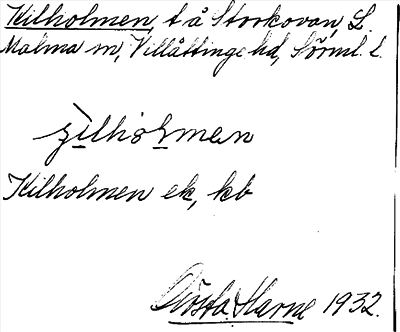 Kilholmen, t å Storkovan, L.
Malma sn, Villåttinge hd, Sörml. l.
Kilholmen ek, kb
Gösta Harne 1932.